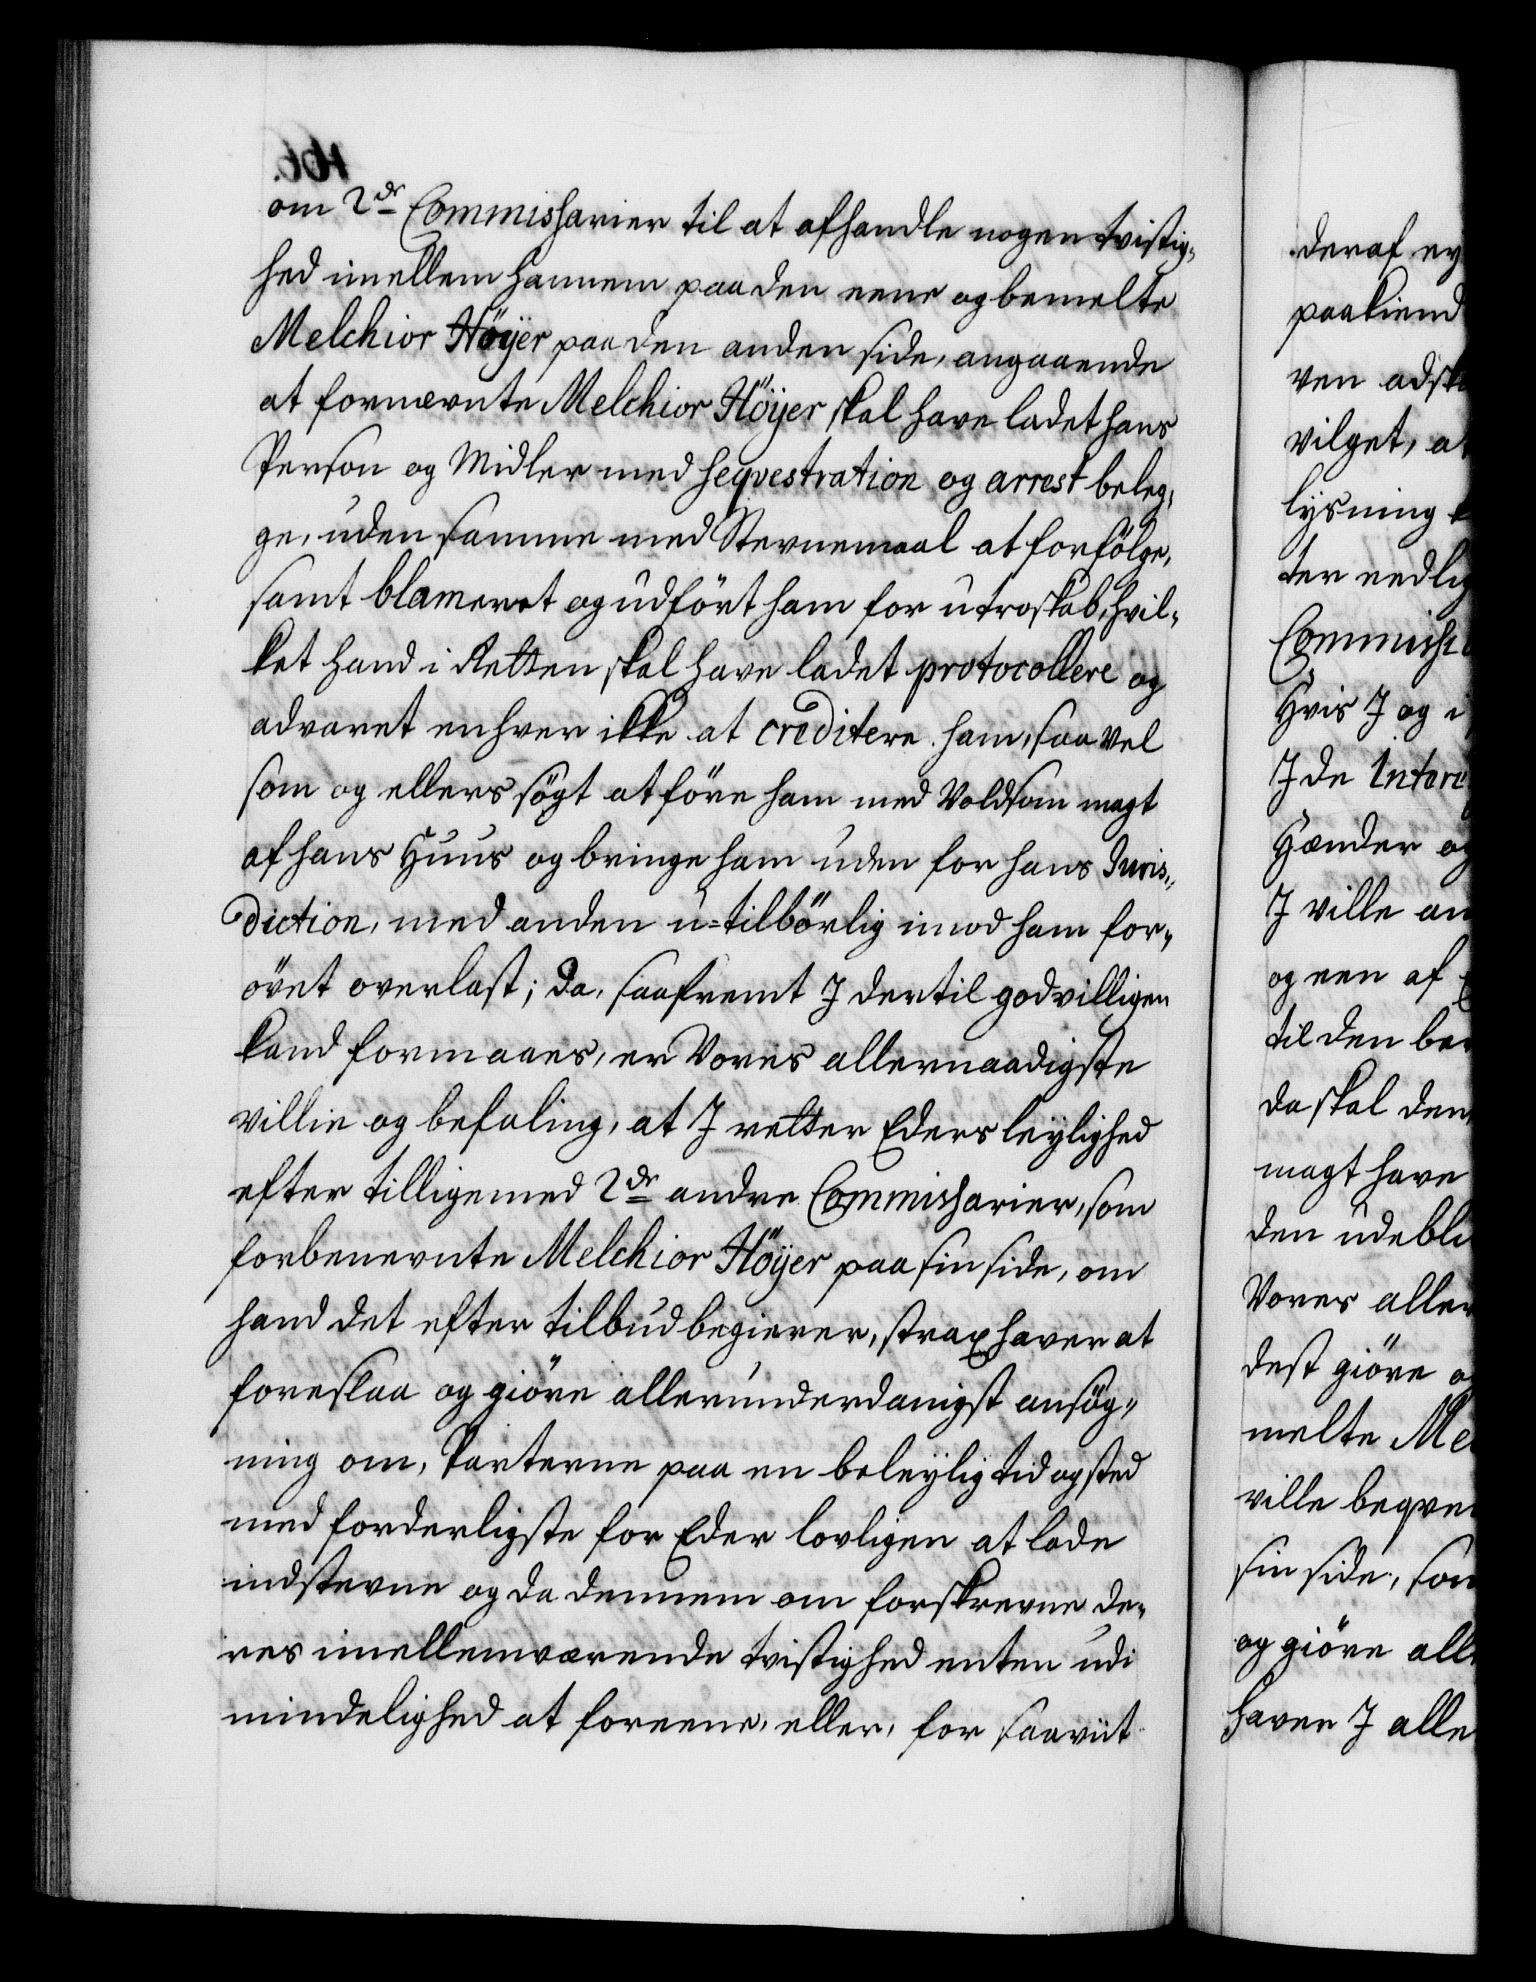 166.
om 2de Commissarier til at afhandle nogen tvistig-
hed imellem hannem paa den eene og bemelte
Melchior Höÿer paa den anden side, angaaende
at fornævnte Melchior Höÿer skal have ladet hans
Person og Midler med seqvestration og arrest beleg-
ge, uden samme med Stevnemaal at forfölge,
samt blameret og udfört ham for utroskab, hvil-
ket hand i Retten skal have ladet protocollere og
advaret enhver ikke at creditere ham, saa vel
som og ellers sögt at före ham med Voldsom magt
af hans Huus og bringe ham uden for hans Juris-
diction, med anden u-tilbörlig imod ham for-
övet overlast; da, saafremt J dertil godvilligen
kand formaaes, er Vores allernaadigste
villie og befaling, at J retter Eders leylighed
efter tilligemed 2de andre Commissarier, som
forbenevnte Melchior Höÿer paa sin side, om
hand det efter tilbud begierer, strax haver at
foreslaa og giöre allerunderdanigst ansög-
ning om, Parterne paa en beleylig tid og sted
med forderligste for Eder lovligen at lade
indstevne og da dennem om forskrevne de-
res imellemværende tvistighed enten udi
mindelighed at foreene, eller, for saavit
deraf ey
paakiend
ven adsk
vilget, a
lysning
ter nedlig
Commissi
Hvis J og i
J de Intere
Hænder og
J ville an
og een af
til den be
da skal den
magt have
den udebli
Vores aller
dest giöre o
melte Me
ville beqve
sin side, som
og giöre alle
haver J alle